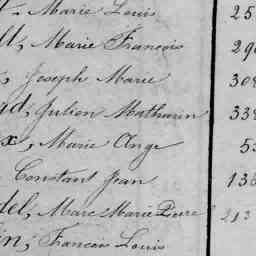 Marie Louis 25
Marie François 29
Joseph Marie 30
Julien Mathurin 33
x, Marie Ange 5
Constant Jean 13
del, Marc Marie Pierre 213
in, François Louis